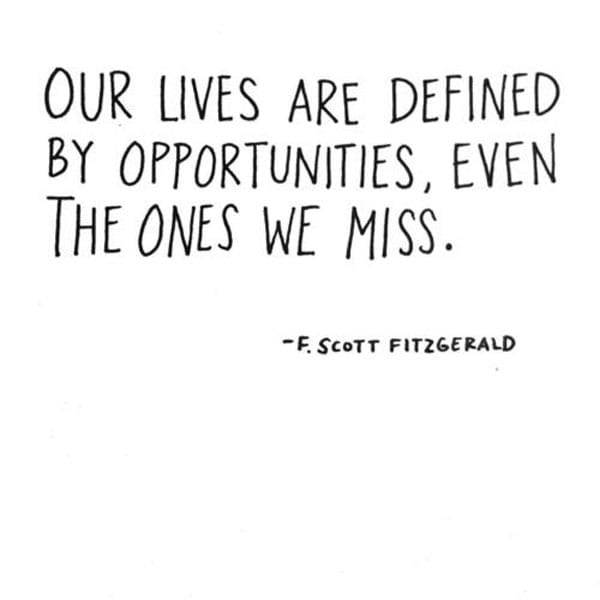 OUR LIVES ARE DEFINED
BY OPPORTUNITIES, EVEN
THE ONES WE MISS.
-F. SCOTT FITZGERALD